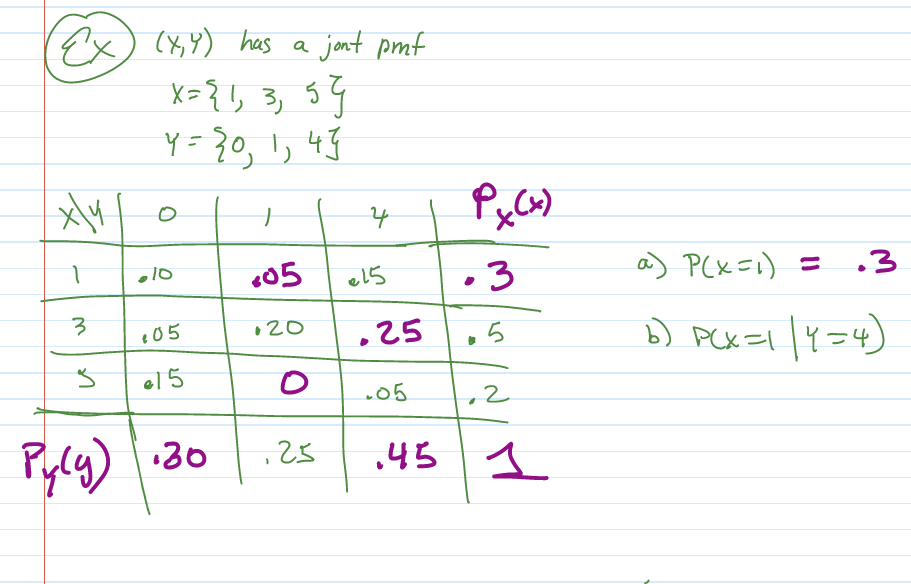 Ex (X,Y) has a jont pmf
X={1, 3, 5}
Y={0, 1, 4}
X\Y 0 1 4 Px(x)
1 .10 .05 .15 .3
3 .05 .20 .25 .5
5 .15 0 .05 .2
PY(y) .30 .25 .45 1
a) P(X=1) = .3
b) P(X=1 | Y=4)